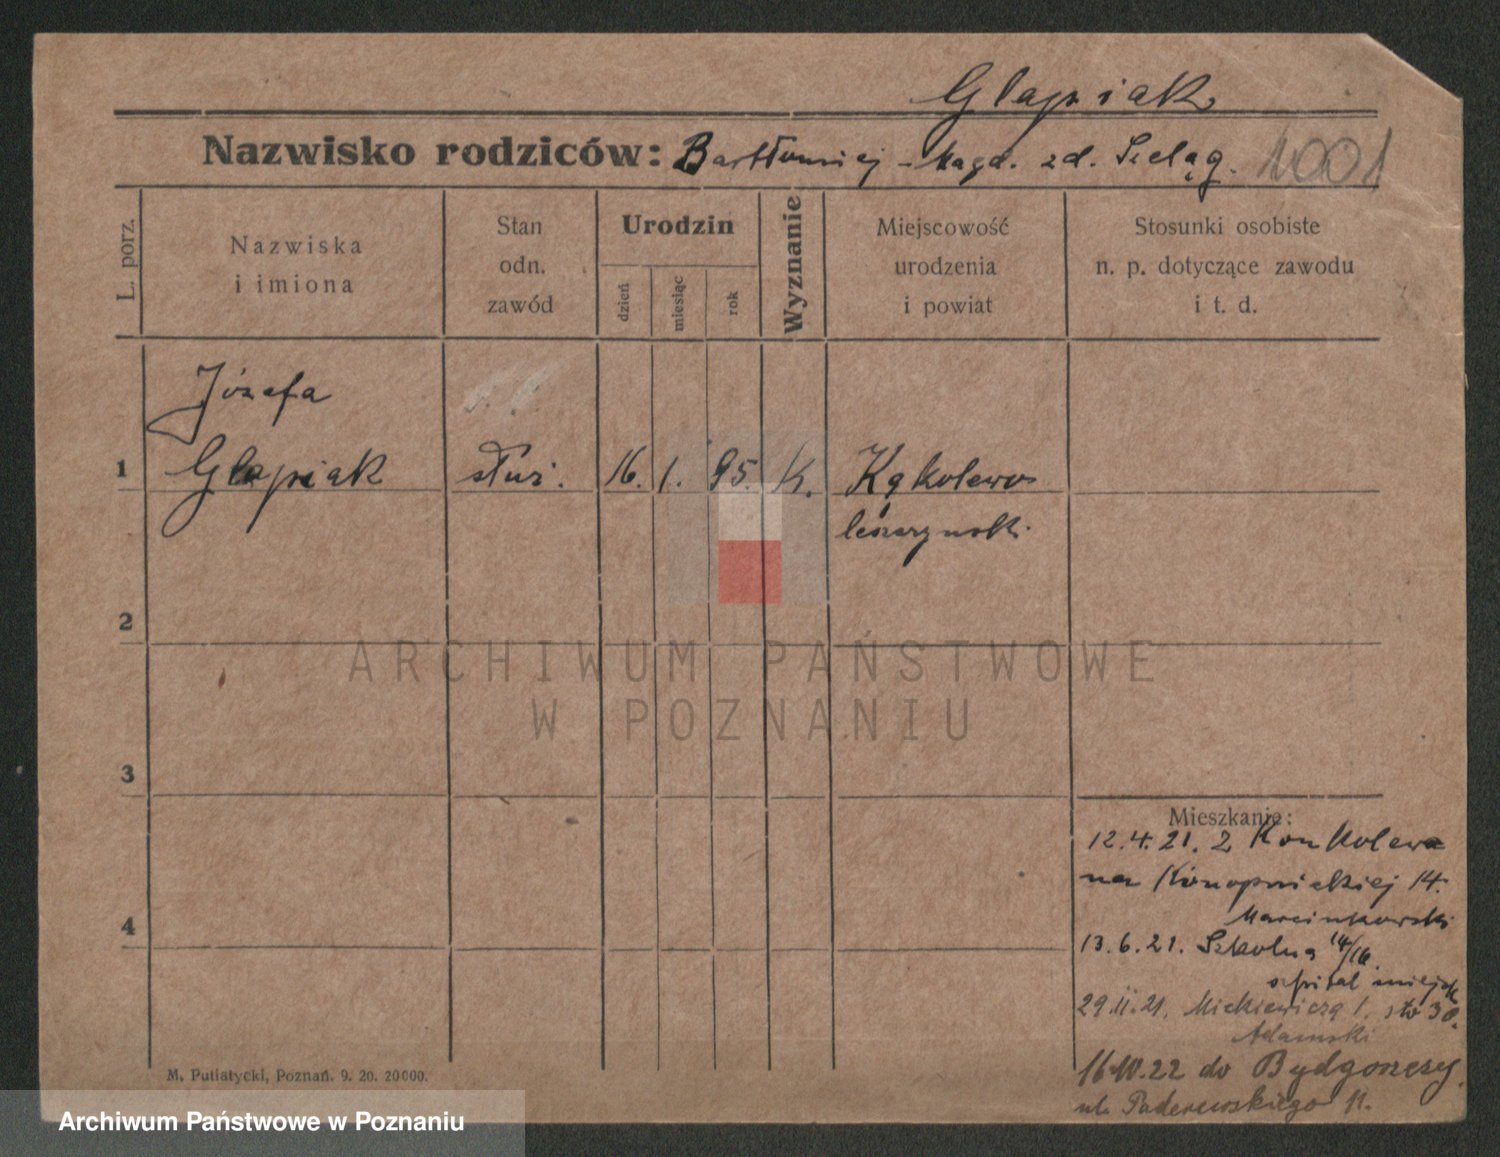 Glapiak
Nazwisko rodziców: Bartłomiej - Magd. zd. Szeląg. 1001
L. porz.
Nazwiska
i imiona
Stan
odn.
zawód
Urodzin
dzień
miesiąc
rok
Wyznanie
Miejscowość
urodzenia
i powiat
Stosunki osobiste
n. p. dotyczące zawodu
i t. d.
Józefa
1 Glapiak służ. 16. 1. 95. K. Kąkolewo
leszczyński
2
ARCHIWUM PAŃSTWOWE
W POZNANIU
3
Mieszkanie:
12.4.21. z Konkolewa
4
na Konopnickiej 14.
Marcinkowski
13.6.21. Szkolna 14/16.
szpital miejsk
29.11.21. Mickiewicza 1.
Adamski
16.IV.22 do Bydgoszczy
ul. Paderewskiego 11.
M. Putiatycki, Poznań. 9. 20. 20000.
Archiwum Państwowe w Poznaniu